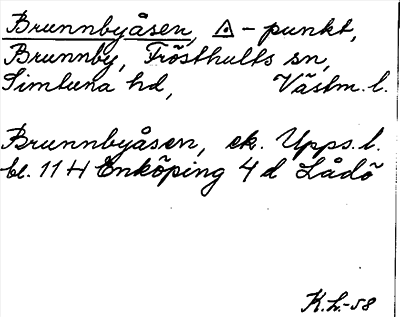 Brunnbyåsen, △ - punkt,
Brunnby, Frösthults sn,
Simtuna hd, Västm. l.
Brunnbyåsen, ek. Upps. l.
bl. 11 H Enköping 4 d Lådö
K.L.-58